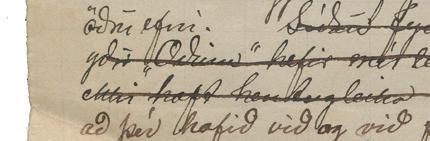 öðru efni. Síðan
yðr "Óðinn" hefir mér
ekki haft hentugleika
að þér hafið við og við